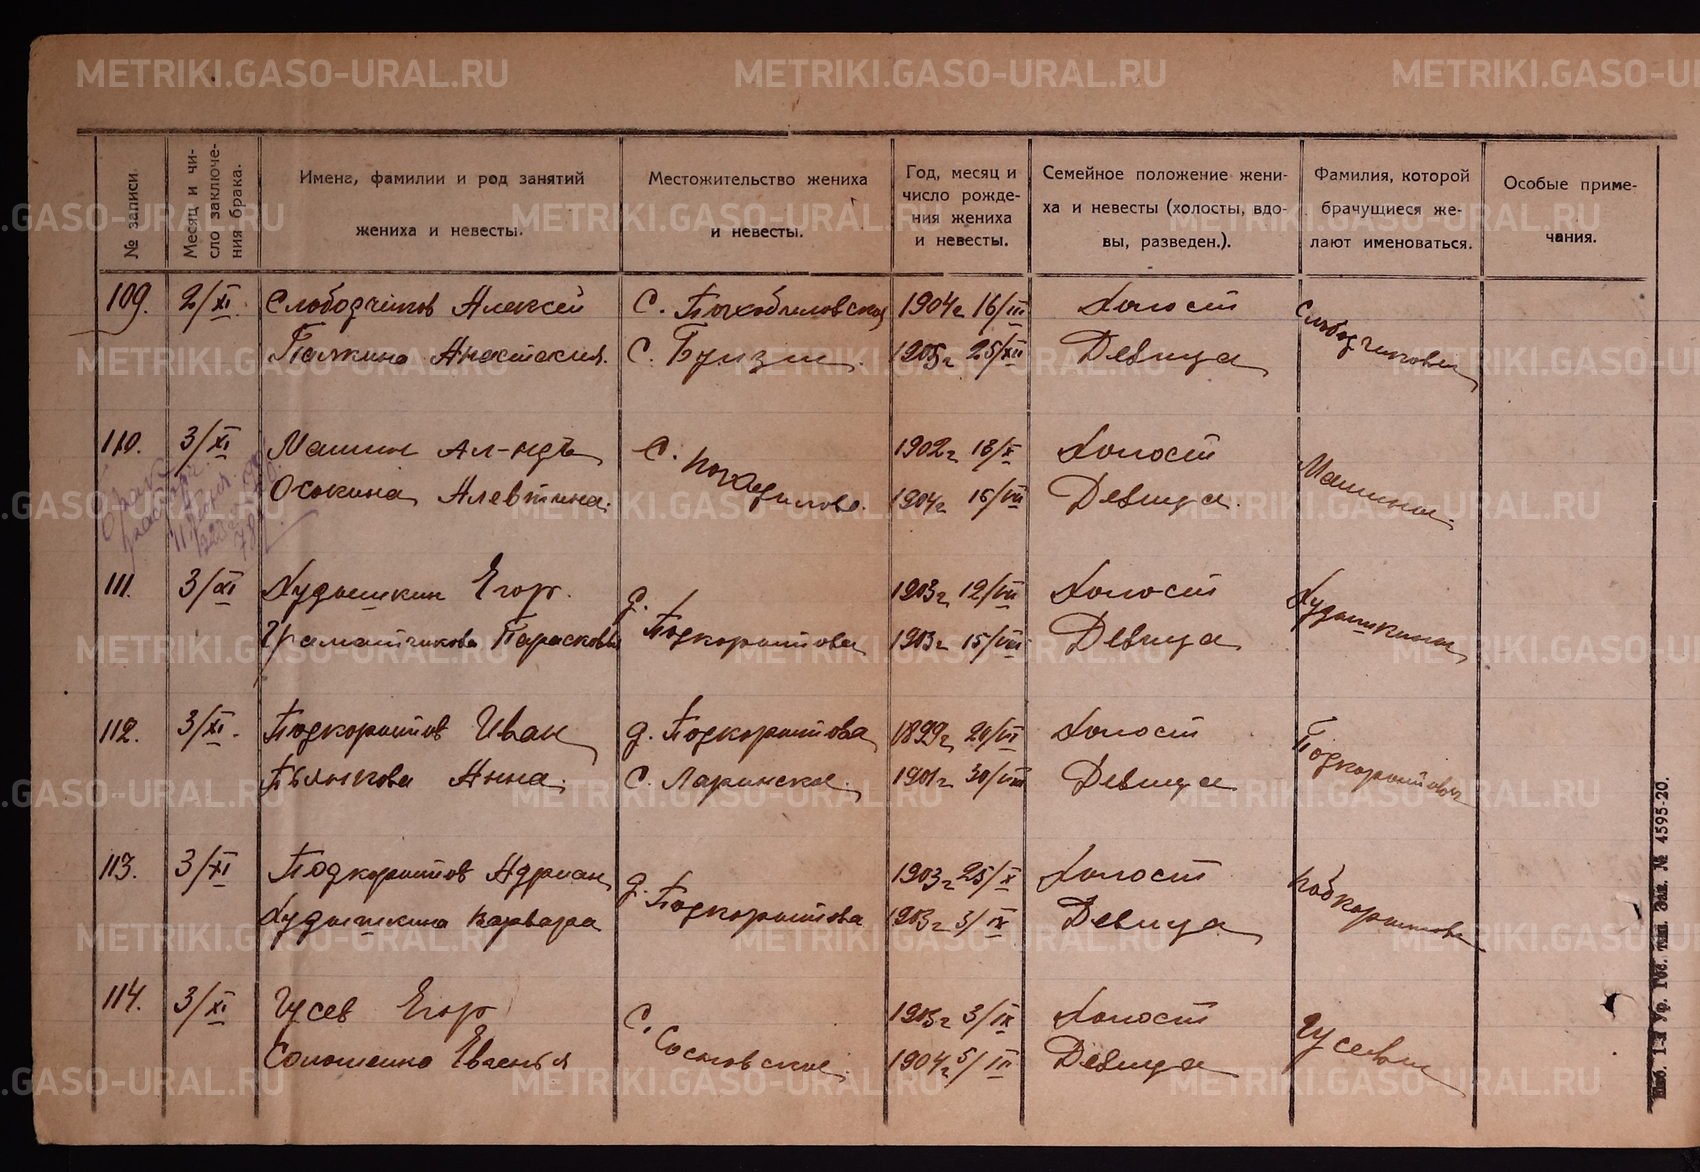 METRIKI.GASO-URAL.RU METRIKI.GASO-URAL.RU METRIKI.GASO-U
№ записи.
Месяц и чи-
сло заключе-
ния брака.
Имена, фамилии и род занятий
жениха и невесты.
Местожительство жениха
и невесты.
Год, месяц и
число рожде-
ния жениха
и невесты.
Семейное положение жени-
ха и невесты (холосты, вдо-
вы, разведен.).
Фамилия, которой
брачущиеся же-
лают именоваться.
Особые приме-
чания.
109. 2/XI. Слободчиков Алексей С. 1904 г. 16/III Холост Слободчиковы
Палкина Анастасия. С. 1905 г. 25/XII Девица
110. 3/XI Машин Ал-ндъ С. 1902 г. 18/X Холост Машины.
Осокина Алевтина. 1904 г. 16/VII Девица.
111. 3/XI Худышкин Егор. д. Подкорытова 1903 г. 12/VII Холост Худышкины
Граматчикова Парасковья 1903 г. 15/VIII Девица
112. 3/XI. Подкорытов Иван д. Подкорытова 1899 г. Холост Подкорытовы
Пьянкова Анна. С. Ларинское. 1901 г. 30/VIII Девица
113. 3/XI Подкорытов Адриан д. Подкорытова 1903 г. 25/X Холост Подкорытовы
Худышкина Варвара 1903 г. 3/IX Девица
114. 3/XI Гусев Егор С. Сосновское. 1903 г. 3/IX Холост Гусевы
Евгенья 1904 г. 5/III Девица
Ур. Гос. тип. Зак. № 4595-20.